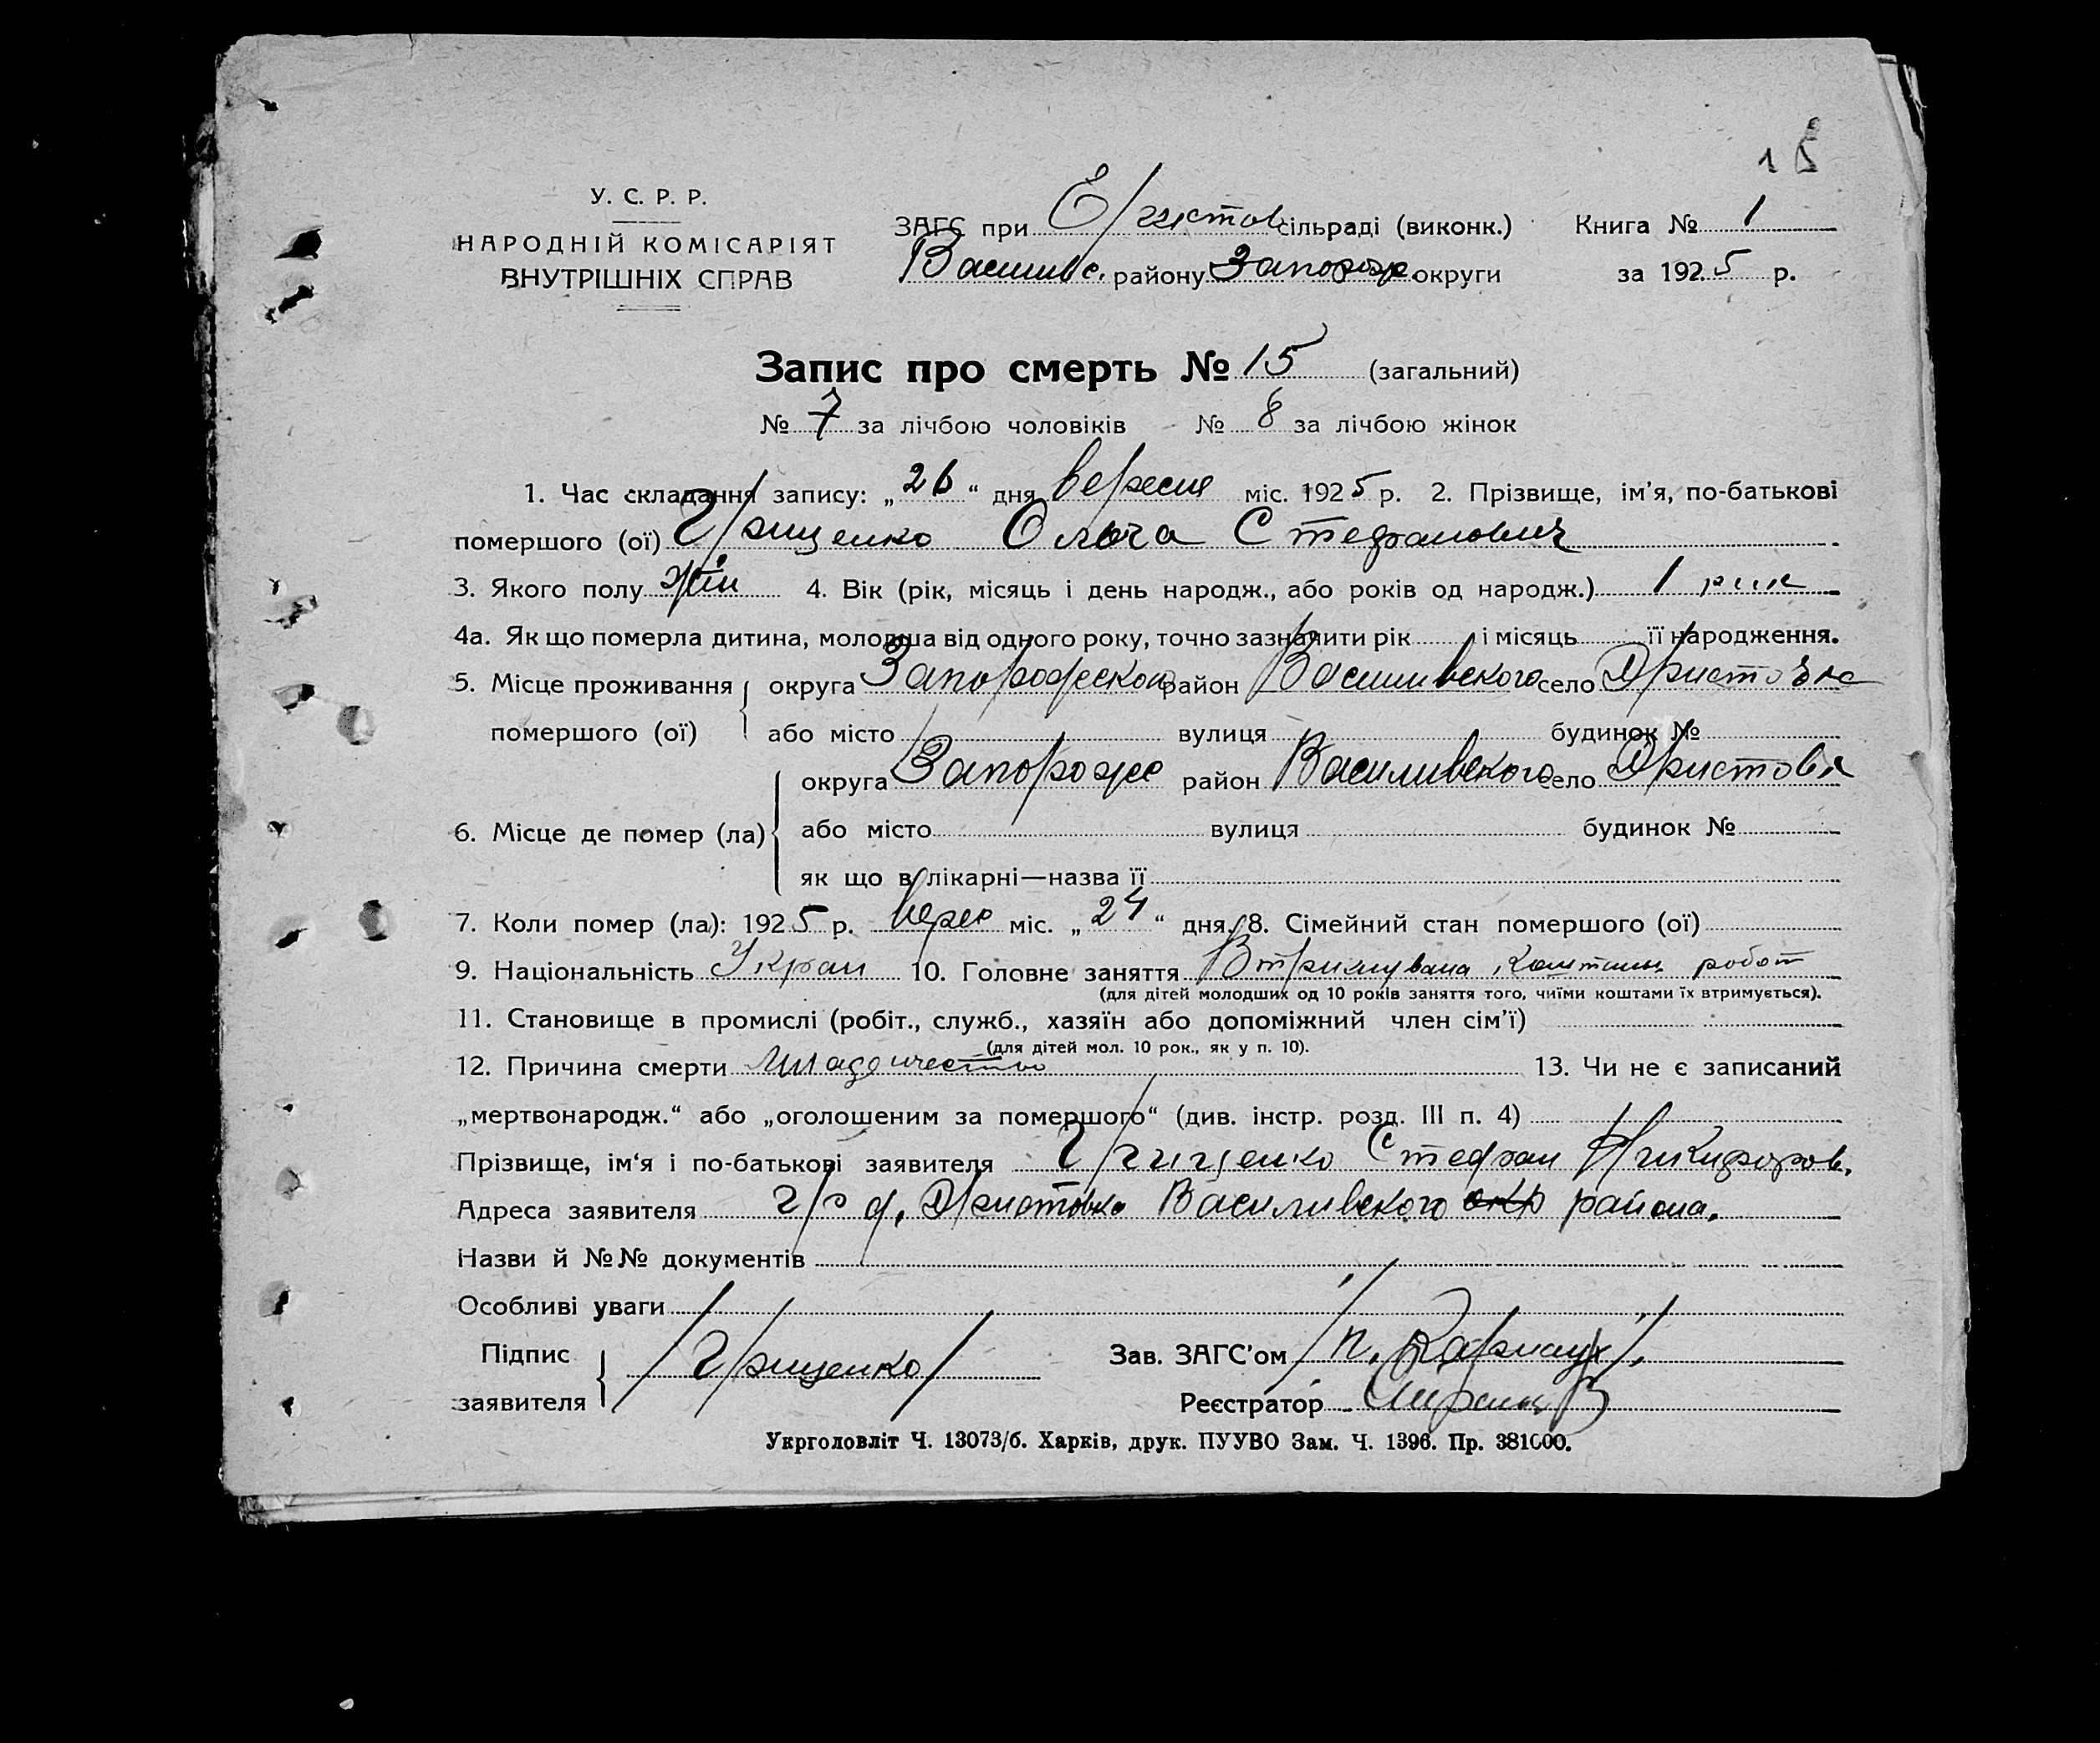 15
У. С. Р. Р.
НАРОДНІЙ КОМІСАРІЯТ
ВНУТРІШНІХ СПРАВ
ЗАГС при сільраді (виконк.) Книга № 1
Василівс. району Запорож округи за 1925 р.
Запис про смерть № 15 (загальний)
№ 7 за лічбою чоловіків № 8 за лічбою жінок
1. Час складання запису: „26“ дня вересня міс. 1925 р. 2. Прізвище, ім’я, по-батькові
помершого (ої) Грищенко Ольга Стефанович
3. Якого полу жін 4. Вік (рік, місяць і день народж., або років од народж.) 1 рик
4а. Як що померла дитина, молодша від одного року, точно зазначити рік і місяць її народження.
5. Місце проживання округа Запорожской район Василивского село
помершого (ої) або місто вулиця будинок №
округа Запорожс район Василивского село
6. Місце де помер (ла) або місто вулиця будинок №
як що в лікарні—назва її
7. Коли помер (ла): 1925 р. верес міс. „24“ дня. 8. Сімейний стан помершого (ої)
9. Національність Украи 10. Головне заняття Втримувана робот
(для дітей молодших од 10 років заняття того, чиїми коштами їх втримується).
11. Становище в промислі (робіт., служб., хазяїн або допоміжний член сім’ї)
(для дітей мол. 10 рок., як у п. 10).
12. Причина смерти младичество 13. Чи не є записаний
„мертвонародж.“ або „оголошеним за помершого“ (див. інстр. розд. III п. 4)
Прізвище, ім‘я і по-батькові заявителя Грищенко Стефан Никифоров.
Адреса заявителя Василивского окр района.
Назви й №№ документів
Особливі уваги
Підпис Грищенко Зав. ЗАГС’ом П. Карнаух
заявителя Реєстратор
Укрголовліт Ч. 13073/б. Харків, друк. ПУУВО Зам. Ч. 1396. Пр. 381000.